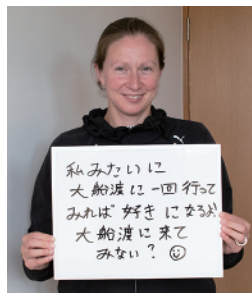 私みたいに
大船渡に一回行って
みれば好きになるよ!
大船渡に来て
みない？☺